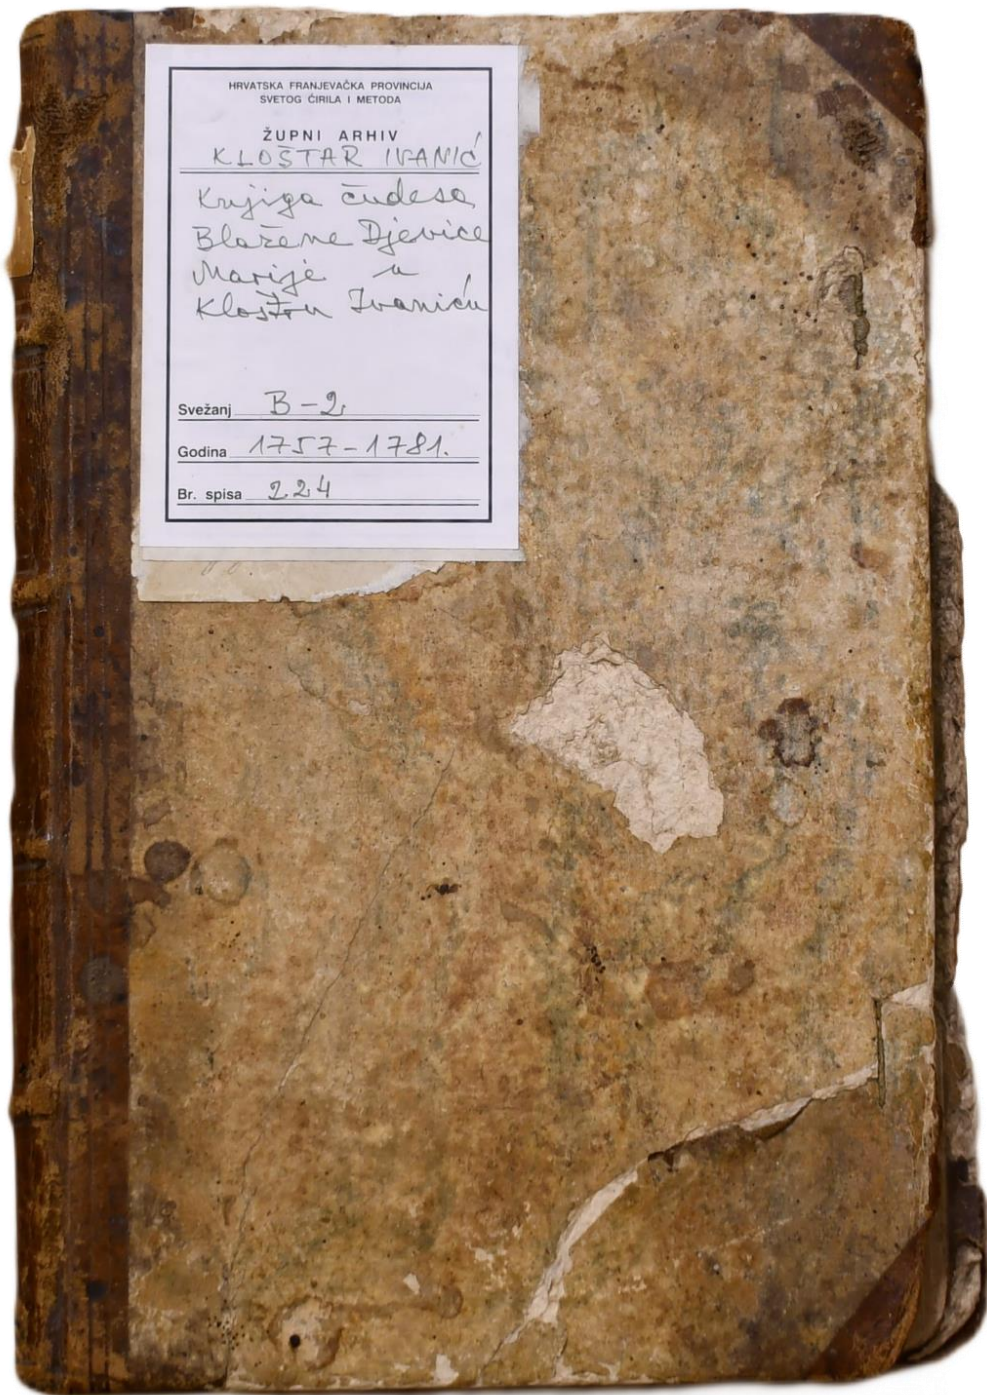 HRVATSKA FRANJEVAČKA PROVINCIJA
SVETOG ĆIRILA I METODA
ŽUPNI ARHIV
KLOŠTAR IVANIĆ
Knjiga čudesa
Blažene Djevice
Marije u
Kloštru Ivaniću
Svežanj B-2
Godina 1757-1781.
Br. spisa 224